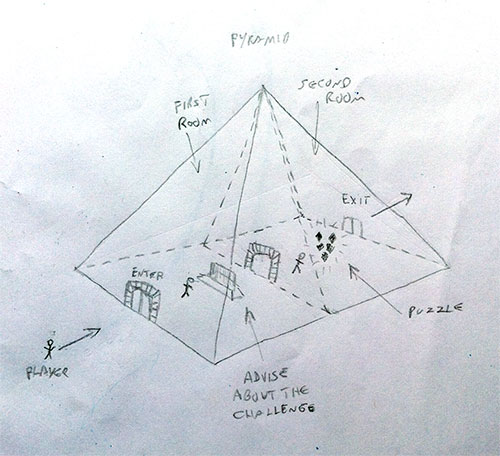 PYRAMID
FIRST
ROOM
SECOND
ROOM
EXIT
ENTER
PUZZLE
PLAYER
ADVISE
ABOUT THE
CHALLENGE